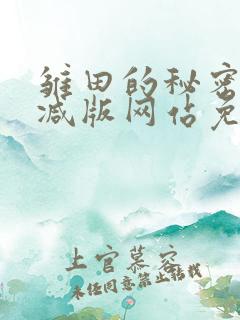 雏田的秘密
减版网佔免
上官慕容
未经同意禁止转载